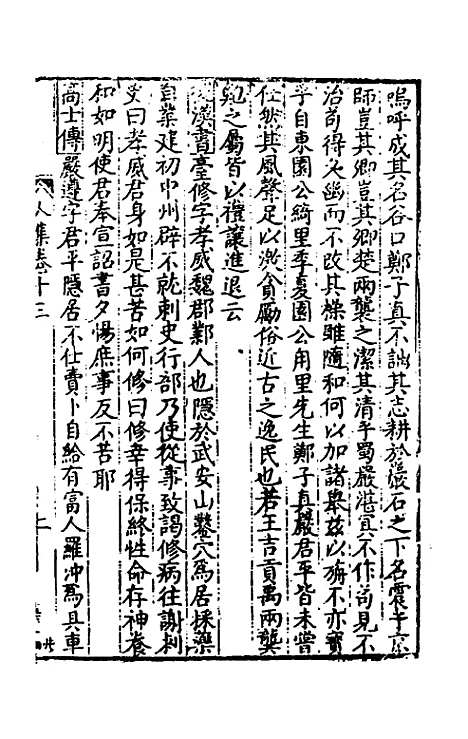 嗚呼成其名谷口鄭子真不詘其志耕於巖石之下名震乎京
師豈其卿豈其卿楚兩龔之潔其清乎蜀嚴湛冥不作苟見不
治苟得久幽而不改其操雖隨和何以加諸舉茲以旃不亦寶
乎自東園公綺里季夏園公甪里先生鄭子真嚴君平皆未嘗
仕然其風聲足以激貪勵俗近古之逸民也若王吉貢禹兩龔
之屬皆以禮讓進退云
漢書臺修字孝威魏郡鄴人也隱於武安山鑿穴爲居採藥
自業建初中州辟不就刺史行部乃使從事致謁修病往謝刺
史曰孝威君身如是甚苦如何修曰修幸得保終性命存神養
和如明使君奉宣詔書夕惕庶事反不苦耶
高士傳嚴遵字君平隱居不仕賣卜自給有富人羅沖爲具車
人集卷十三